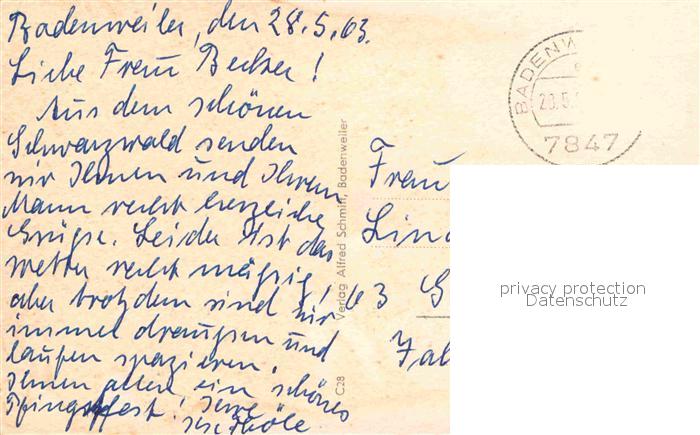 Badenweiler, den 28.5.63.
Liebe Frau Becker!
Aus dem schönen
Schwarzwald senden
wir Ihnen und Ihrem
Mann recht herzliche
Grüße. Leider ist das
Wetter recht mäßig,
aber trotzdem sind wir
immer draußen und
laufen spazieren.
Ihnen allen ein schönes
Pfingstfest! Ihre
Verlag Alfred Schmitt, Badenweiler
C28
BADENW
28.5.
7847
Frau
Lin
63 G
privacy protection
Datenschutz